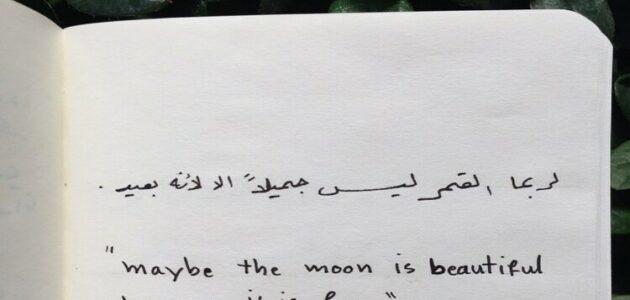 لربما القمر ليس جميلاً الا لأنه بعيد .
"maybe the moon is beautiful